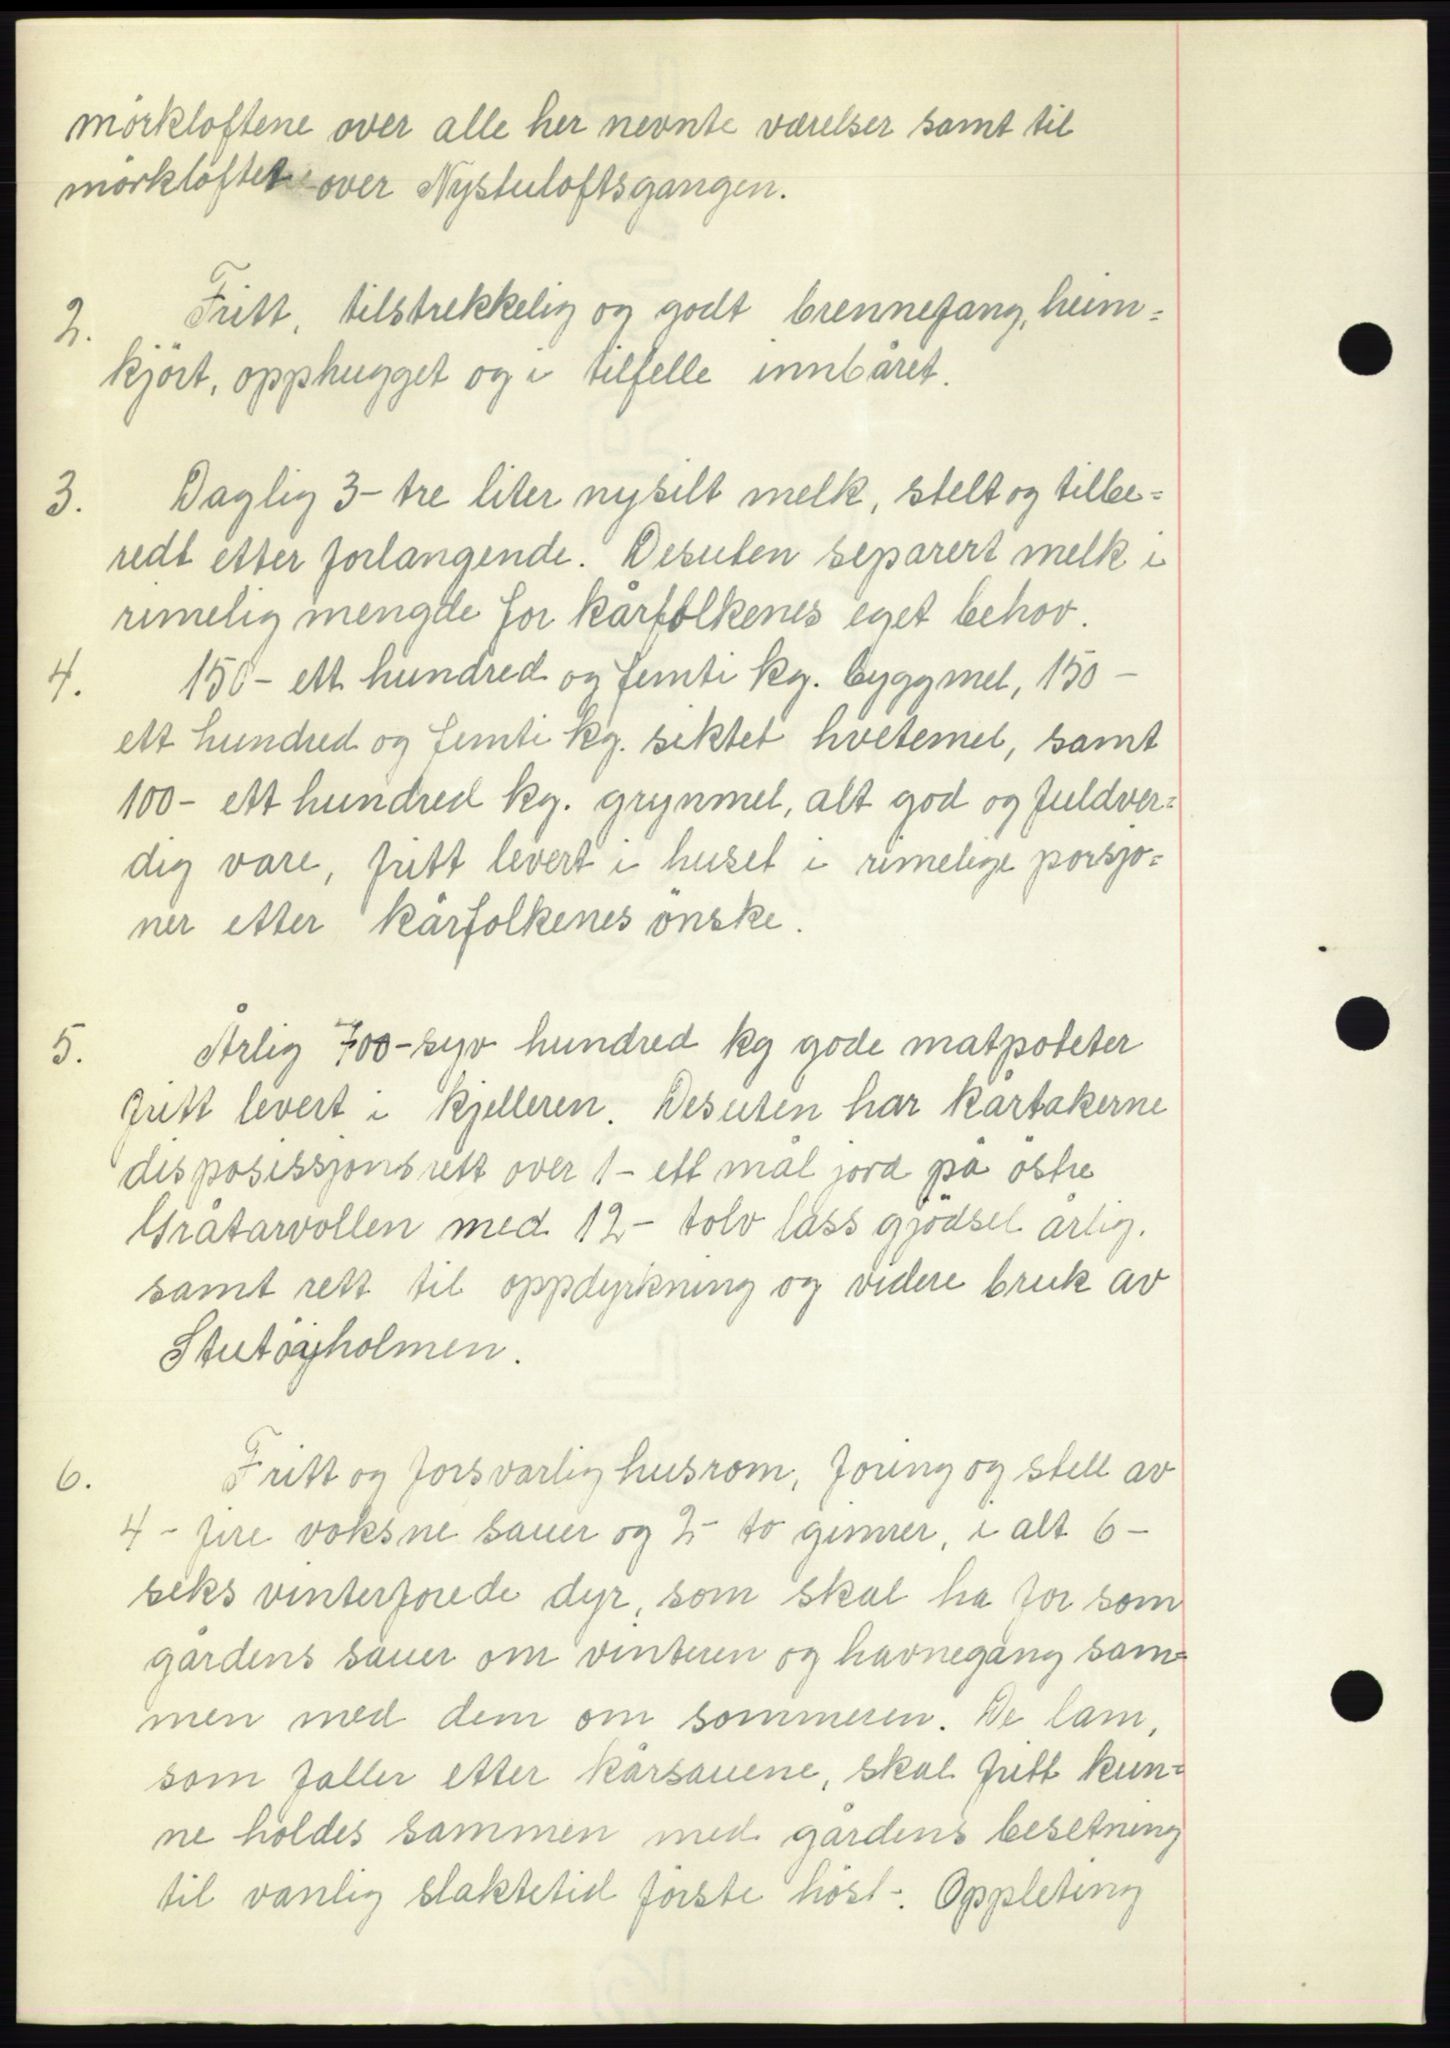 mörkloftene over alle her nevnte værelser samt til
mörkloftet over Nystuloftsgangen.
2. Fritt, tilstrekkelig og godt brennefang, heim=
kjört, opphugget og i tilfelle innbåret.
3. Daglig 3- tre liter nysilt melk, stelt og tilbe=
redt etter forlangende. Desuten separert melk i
rimelig mengde for kårfolkenes eget behov.
4. 150- ett hundred og femti kg. byggmel, 150-
ett hundred og femti kg. siktet hvetemel, samt
100- ett hundred kg. grynmel, alt god og fuldver=
dig vare, fritt levert i huset i rimelige porsjo=
ner etter kårfolkenes önske.
5. Årlig 700-syv hundred kg gode matpoteter
fritt levert i kjelleren. Desuten har kårtakerne
disposissjonsrett over 1- ett mål jord på östre
Gråtarvollen med 12- tolv lass gjödsel årlig.
samt rett til oppdyrkning og videre bruk av
Stutöyholmen.
6. Fritt og forsvarlig husrom, foring og stell av
4- fire voksne sauer og 2- to gimrer, i alt 6-
seks vinterforede dyr, som skal ha for som
gårdens sauer om vinteren og havnegang sam=
men med dem om sommeren. De lam,
som faller etter kårsauene, skal fritt kun=
ne holdes sammen med gårdens besetning
til vanlig slaktetid förste höst-. Oppleting